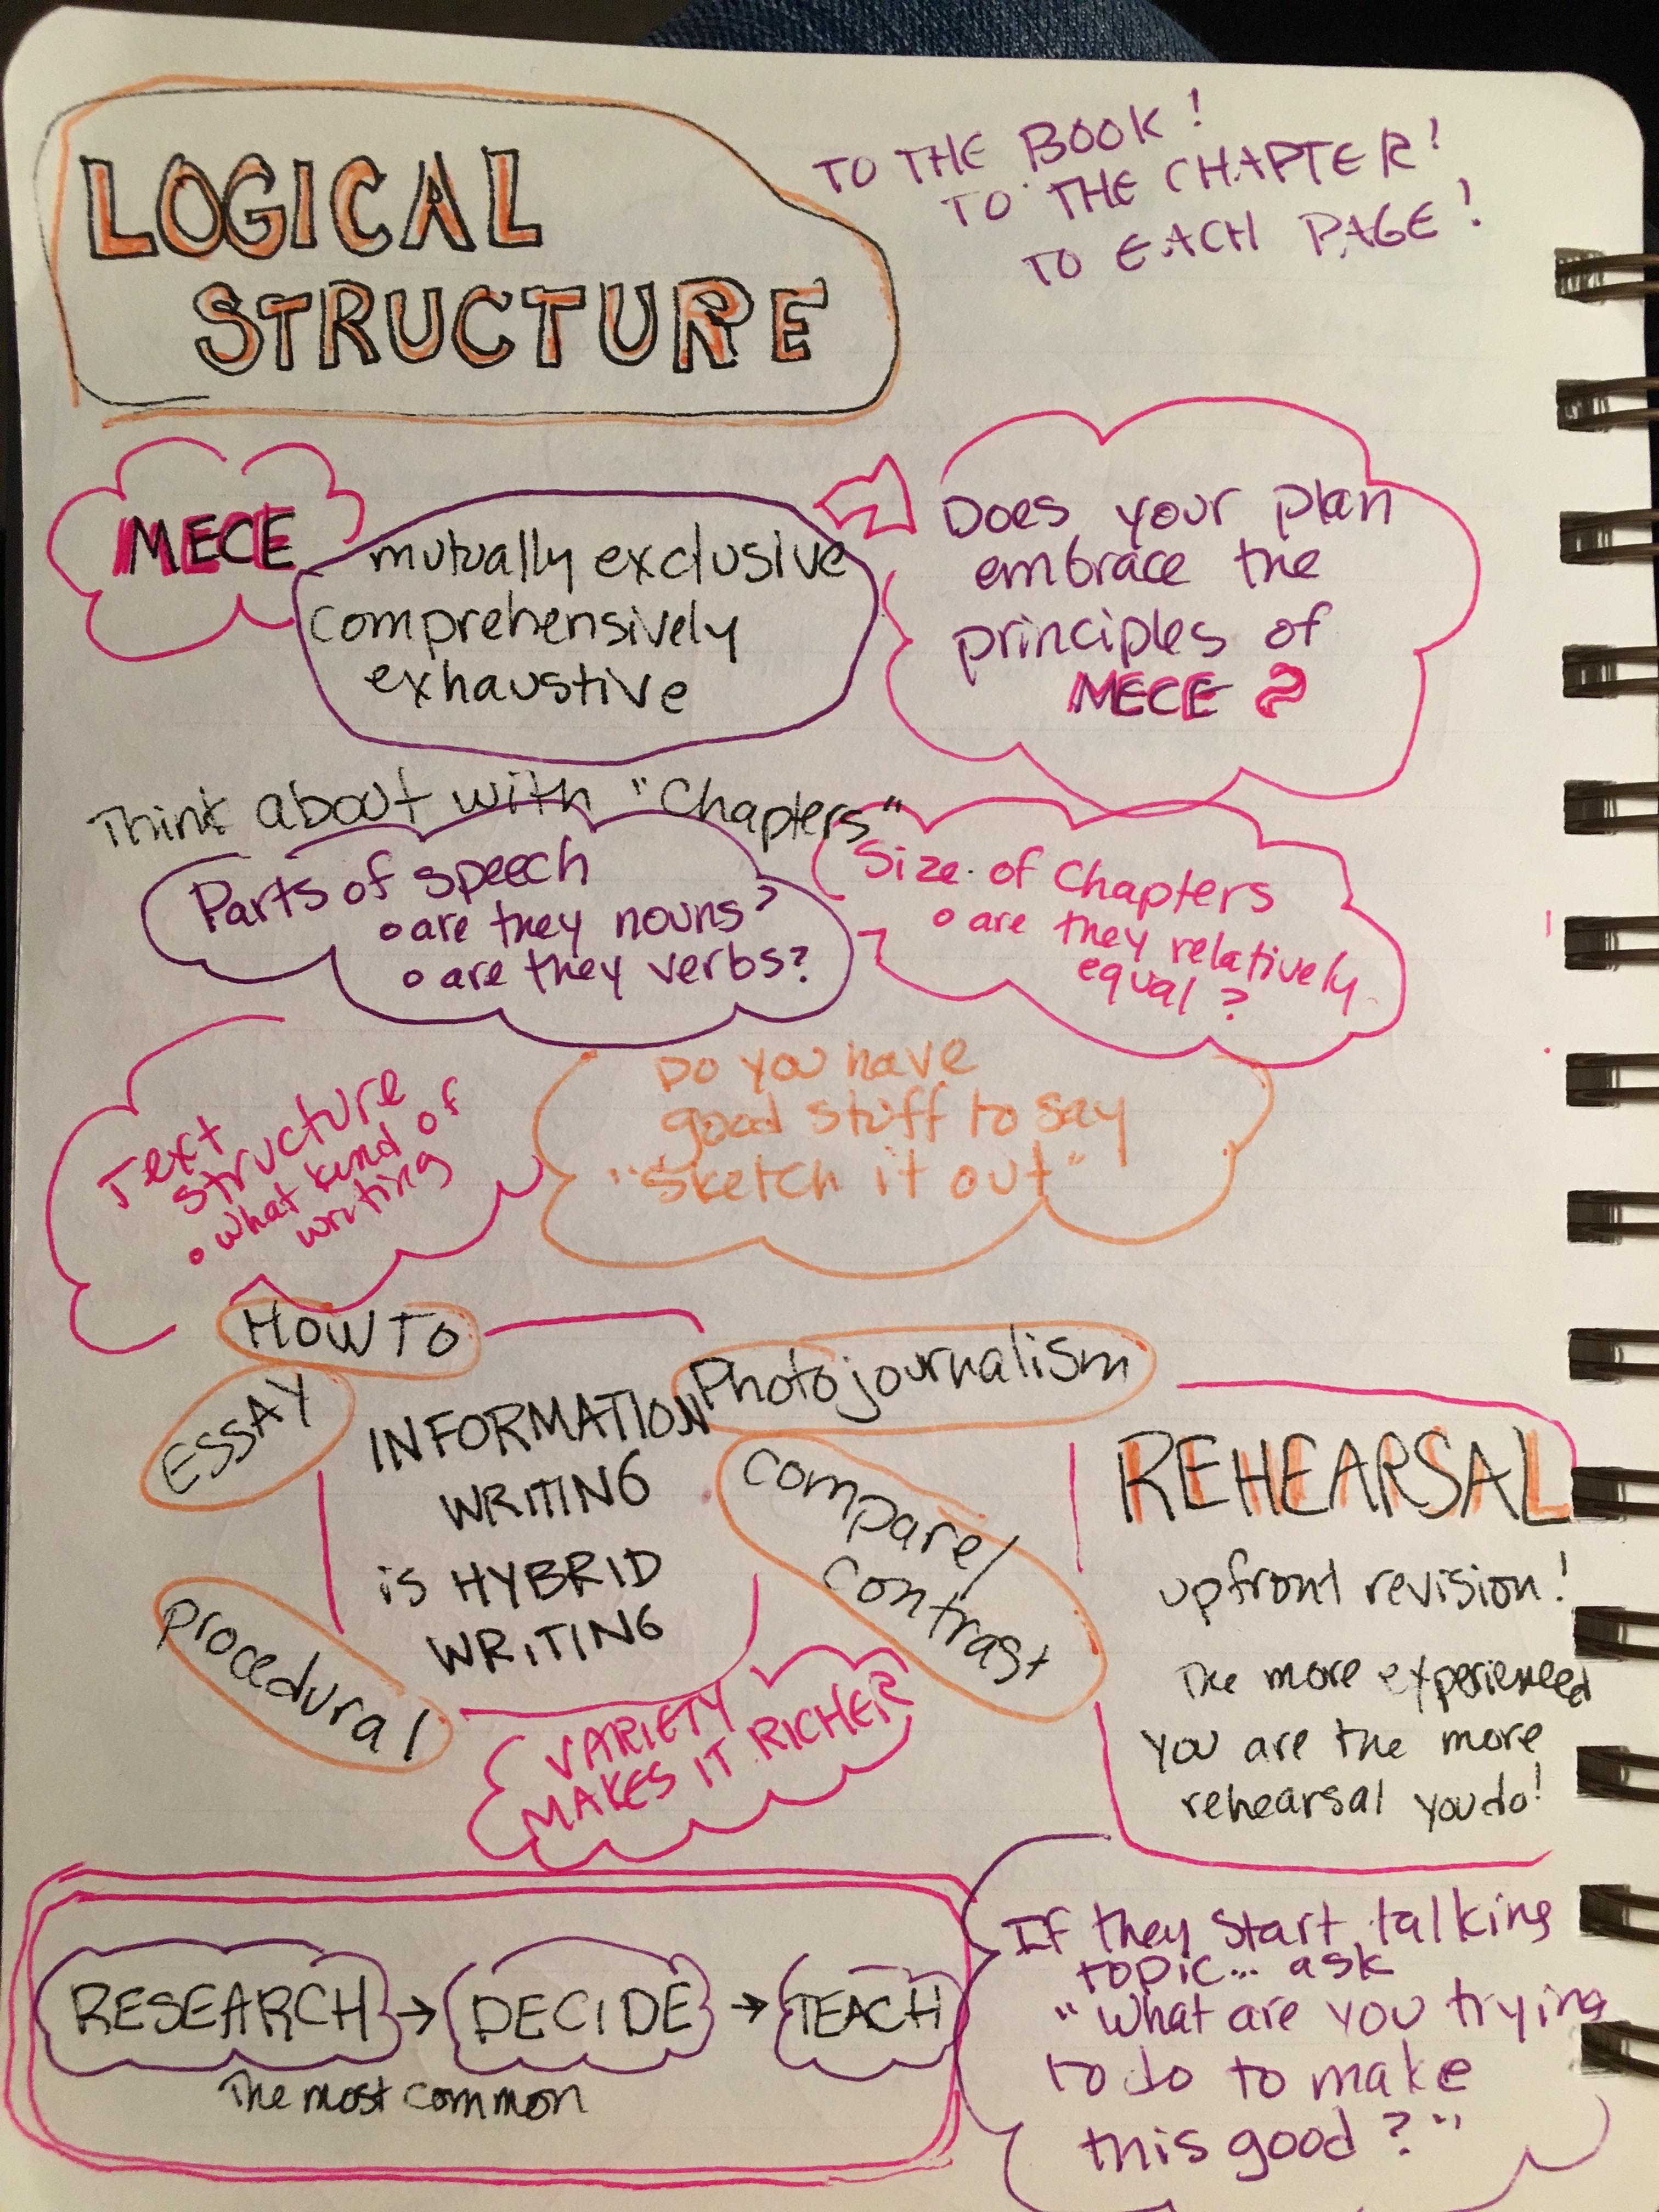 LOGICAL
STRUCTURE
TO THE BOOK!
TO THE CHAPTER!
TO EACH PAGE!
MECE
mutually exclusive
comprehensively
exhaustive
Does your plan
embrace the
principles of
MECE?
Think about with "Chapters"
Parts of speech
are they nouns?
are they verbs?
Size of Chapters
are they relatively
equal?
Text
structure
what kind of
writing
Do you have
good stuff to say
"sketch it out"
HOW TO
ESSAY
Photojournalism
INFORMATION
WRITING
is HYBRID
WRITING
compare/
contrast
procedural
VARIETY
MAKES IT RICHER
REHEARSAL
upfront revision!
The more experienced
you are the more
rehearsal you do!
RESEARCH → DECIDE → TEACH
The most common
If they start talking
topic... ask
"What are you trying
to do to make
this good?"